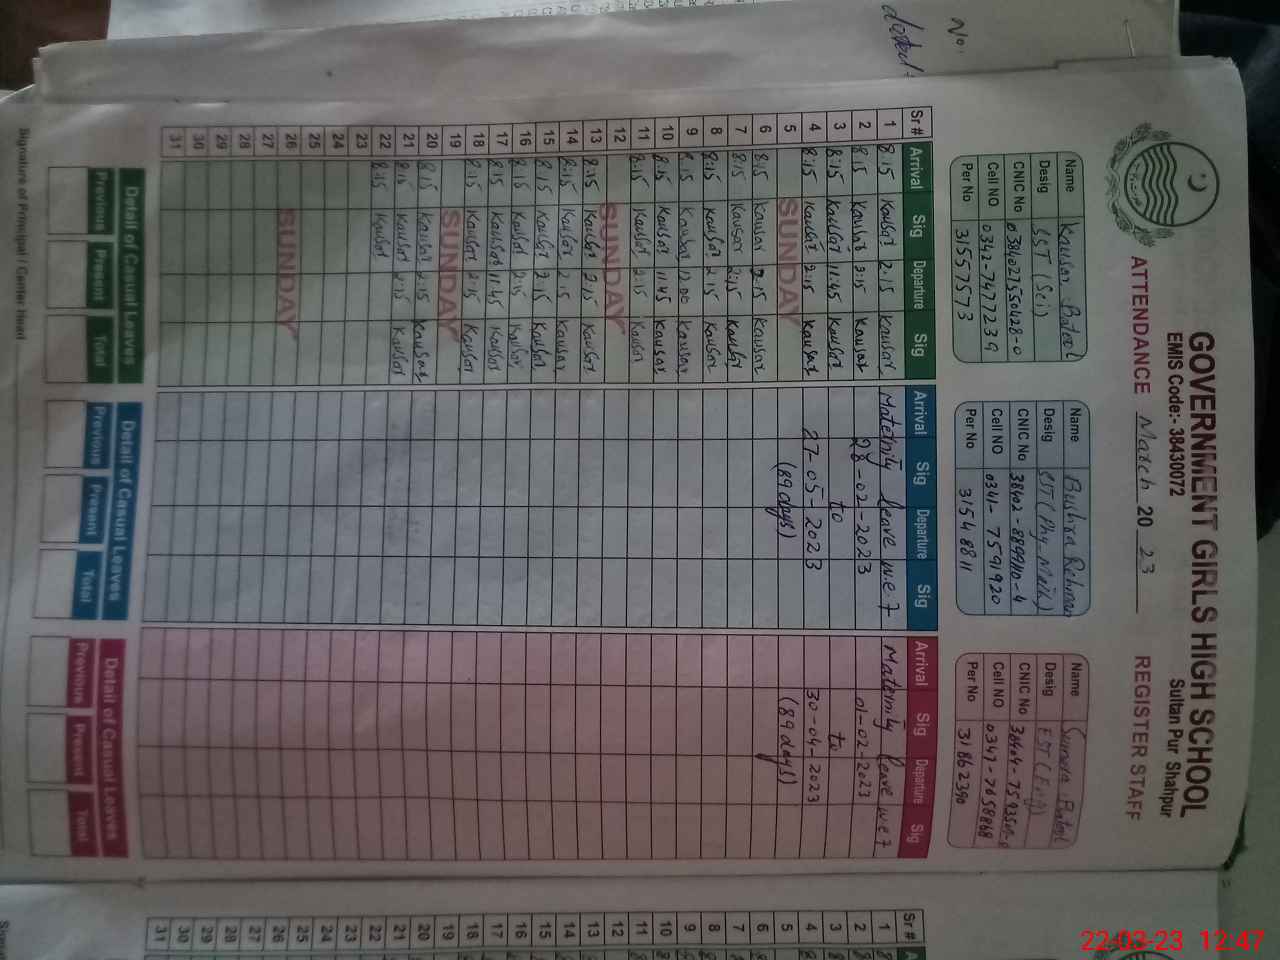 No:
dated:
GOVERNMENT GIRLS HIGH SCHOOL
EMIS Code:- 38430072
Sultan Pur Shahpur
ATTENDANCE March 20 23 REGISTER STAFF
Name Kausar Batool
Desig SST (Sci)
CNIC No
Cell NO 0342-7477239
Per No 31557573
Name Bushra Rehman
Desig SST (Phy-Math)
CNIC No
Cell NO 0341-7591920
Per No 31548811
Name Batool
Desig EST (Eng)
CNIC No
Cell NO 0347-7658868
Per No 31862390
Sr# Arrival Sig Departure Sig Arrival Sig Departure Sig Arrival Sig Departure Sig
1 8:15 Kausar 2:15 Kausar Maternity leave w.e.f Maternity leave w.e.f
2 8:15 Kausar 2:15 Kausar 28-02-2023 01-02-2023
3 8:15 Kausar 11:45 Kausar to to
4 8:15 Kausar 2:15 Kausar 27-05-2023 30-04-2023
5 SUNDAY (89 days) (89 days)
6 8:15 Kausar 2:15 Kausar
7 8:15 Kausar 2:15 Kausar
8 8:15 Kausar 2:15 Kausar
9 8:15 Kausar 12:00 Kausar
10 8:15 Kausar 11:45 Kausar
11 8:15 Kausar 2:15 Kausar
12 SUNDAY
13 8:15 Kausar 2:15 Kausar
14 8:15 Kausar 2:15 Kausar
15 8:15 Kausar 2:15 Kausar
16 8:15 Kausar 2:15 Kausar
17 8:15 Kausar 11:45 Kausar
18 8:15 Kausar 2:15 Kausar
19 SUNDAY
20 8:15 Kausar 2:15 Kausar
21 8:15 Kausar 2:15 Kausar
22 8:15 Kausar
23
24
25
26 SUNDAY
27
28
29
30
31
Detail of Casual Leaves Detail of Casual Leaves Detail of Casual Leaves
Previous Present Total Previous Present Total Previous Present Total
Signature of Principal / Center Head
Sr#
1
2
3
4
5
6
7
8
9
10
11
12
13
14
15
16
17
18
19
20
21
22
23
24
25
26
27
28
29
30
31
22-03-23 12:47